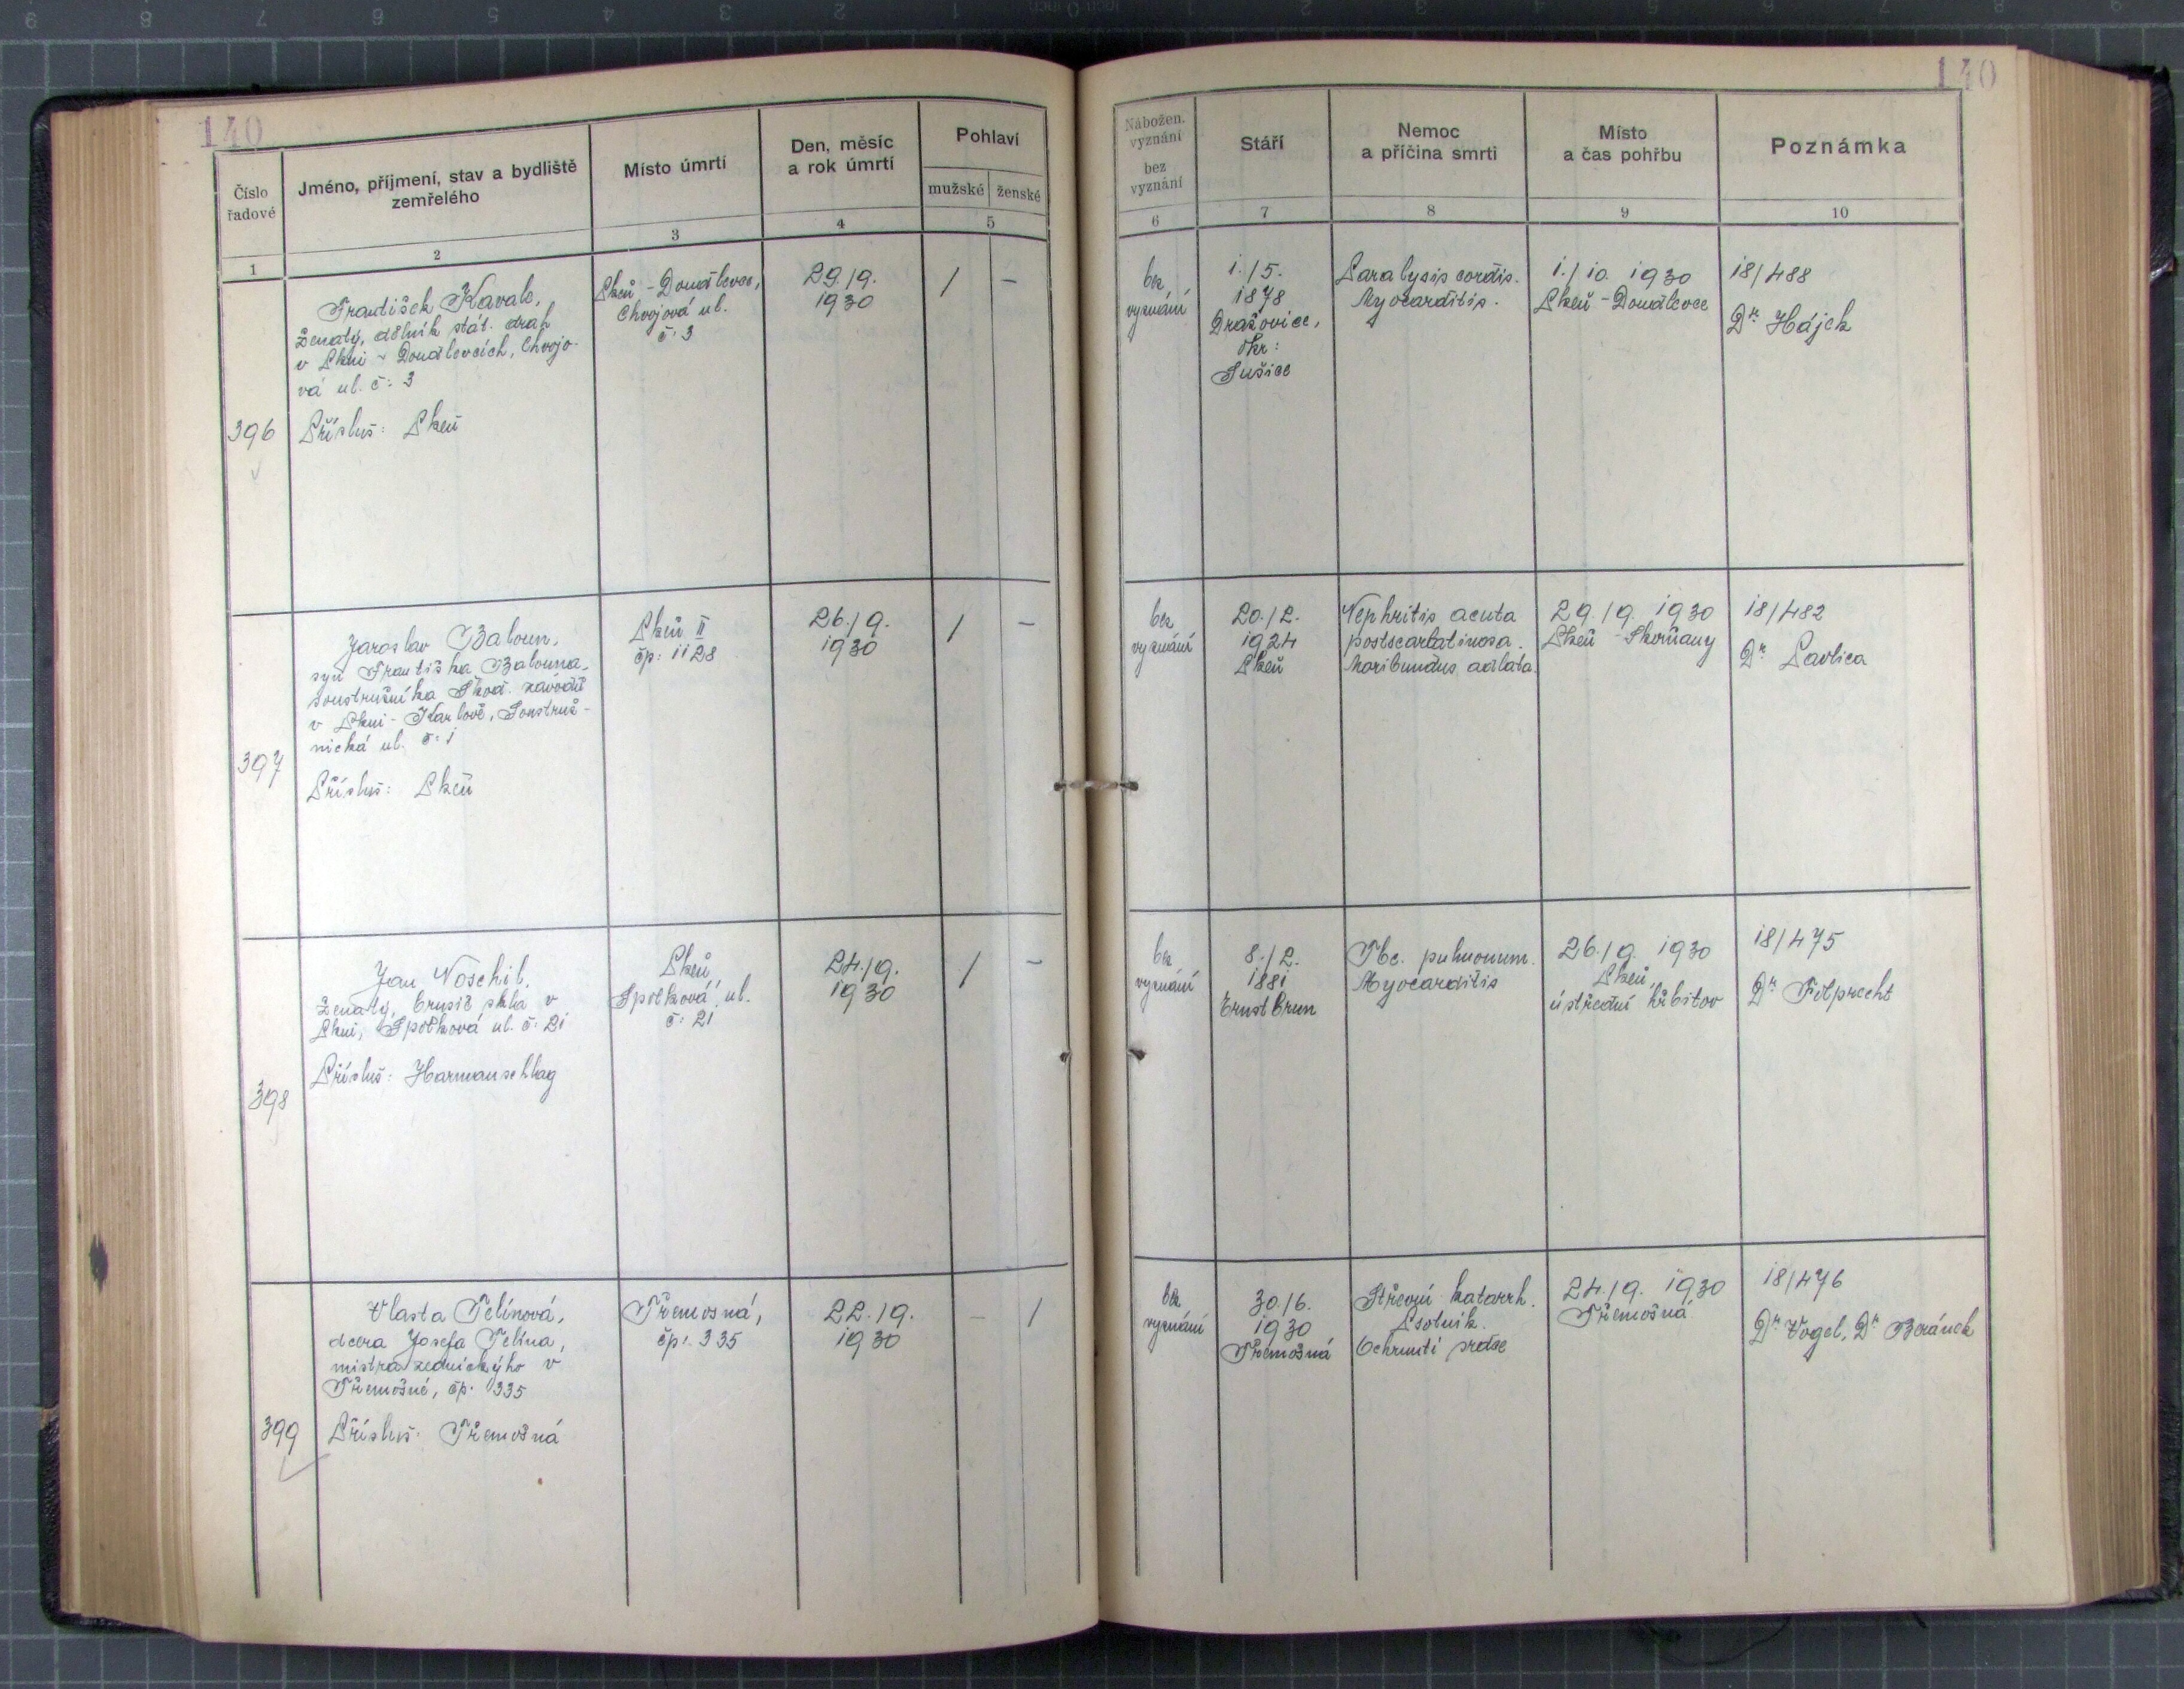 140
Číslo řadové
Jméno, příjmení, stav a bydliště zemřelého
Místo úmrtí
Den, měsíc a rok úmrtí
Pohlaví
mužské
ženské
1
2
3
4
5
396
František Kavale,
ženatý, dělník stát. drah
v Plzni - Doudlevcích, Chvojo-
vá ul. č: 3
Přísluš: Plzeň
Plzeň - Doudlevce,
Chvojová ul.
č: 3
29./9.
1930
/
-
397
Jaroslav Baloun,
syn Františka Balouna,
soustružníka Škod. závodů
v Plzni - Karlově, Soustruž-
nická ul. č: 1
Přísluš: Plzeň
Plzeň II
čp: 1128
26./9.
1930
/
-
398
Jan Noschil,
ženatý, brusič skla v
Plzni, Spolková ul. č: 21
Přísluš: Harmanschlag
Plzeň,
Spolková ul.
č: 21
24./9.
1930
/
-
399
Vlasta Telínová,
dcera Josefa Telína,
mistra zednického v
Třemošné, čp. 335
Přísluš: Třemošná
Třemošná,
čp: 335
22./9.
1930
-
/
140
Nábožen. vyznání
bez vyznání
Stáří
Nemoc a příčina smrti
Místo a čas pohřbu
Poznámka
6
7
8
9
10
bez
vyznání
1./5.
1878
Dražovice,
okr:
Sušice
Paralysis cordis.
Myocarditis.
1./10. 1930
Plzeň - Doudlevce
18/488
Dr Hájek
bez
vyznání
20./2.
1924
Plzeň
Nephritis acuta
postscarlatinosa.
Moribundus adlata.
29./9. 1930
Plzeň - Skvrňany
18/482
Dr Pavlica
bez
vyznání
8./2.
1881
Ernstbrun
Tbc. pulmonum.
Myocarditis
26./9. 1930
Plzeň,
ústřední hřbitov
18/475
Dr Folprecht
bez
vyznání
30./6.
1930
Třemošná
Střevní katarrh.
Psotník.
Ochrnutí srdce
24./9. 1930
Třemošná
18/476
Dr Vogel, Dr Beránek